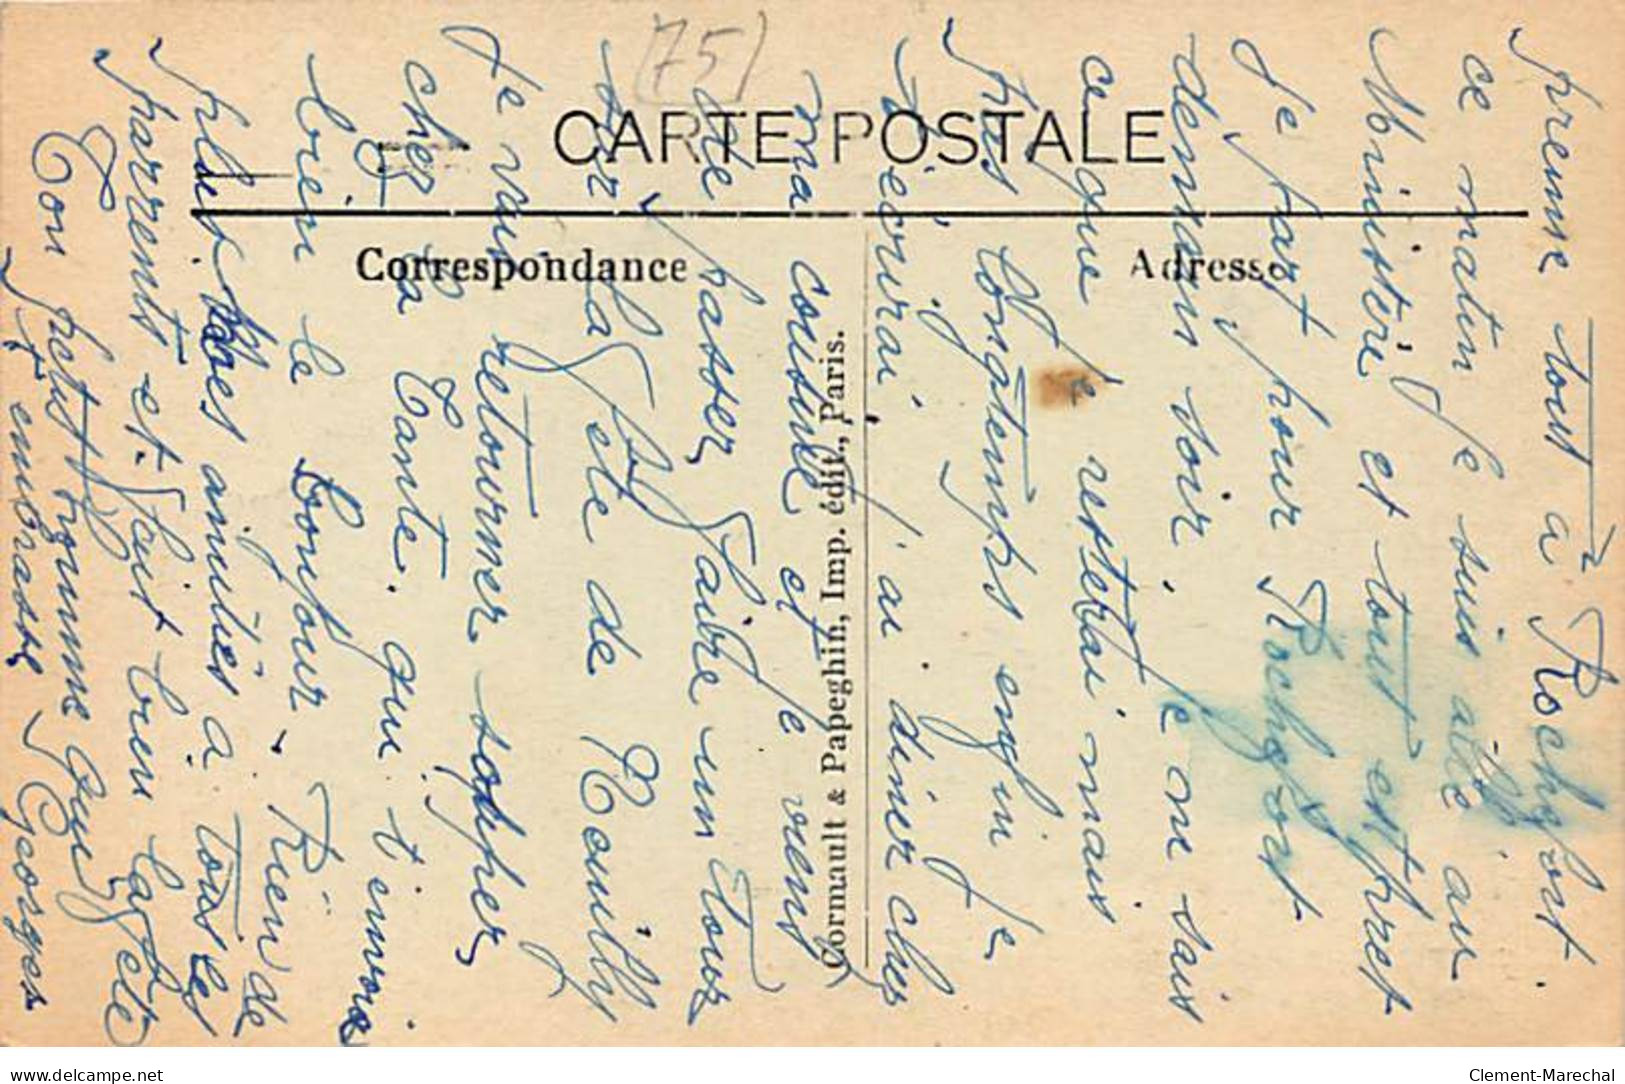 (75)
CARTE POSTALE
Correspondance
Adresse
Cormault & Papeghin, Imp. édit., Paris.
preunne tout à Rochefort.
ce matin je suis allé au
Ministère et tout est pret
Je part pour Rochefort
demain soir. Je ne sais
ce que je resterai mais
pas longtemps enfin je
t'écrirai j'ai diner chez
ma cousine et je viens
de passer faire un tour
sur la fête de Neuilly
Je vais retourner souper
chez la Tante. qui t'envoie
bien le bonjour. Rien de
plus mes amitiés à tous les
parrents et fait bien la fête
Ton petit homme qui
t'embrasse Georges
Clement-Marechal
https://www.delcampe.net